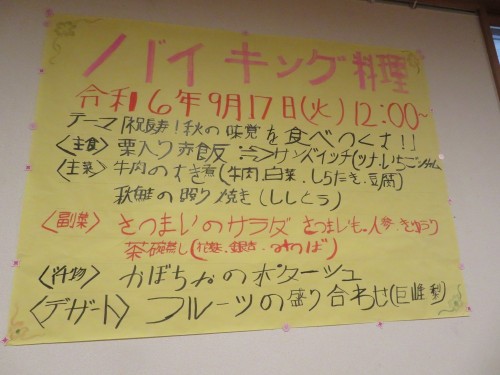 バイキング料理
令和6年9月17日(火)12:00~
テーマ「祝長寿!秋の味覚を食べつくす!!
<主食> 栗入り赤飯 ⇒ サンドイッチ(ツナ.いちごジャム
<主菜> 牛肉のすき煮(牛肉.白菜.しらたき.豆腐)
秋鮭の照り焼き(ししとう)
<副菜> さつまいものサラダ さつまいも.人参.きゅうり
茶碗蒸し(花麩.銀杏.ゆば)
<汁物> かぼちゃのポタージュ
<デザート> フルーツの盛り合わせ(巨峰.梨)